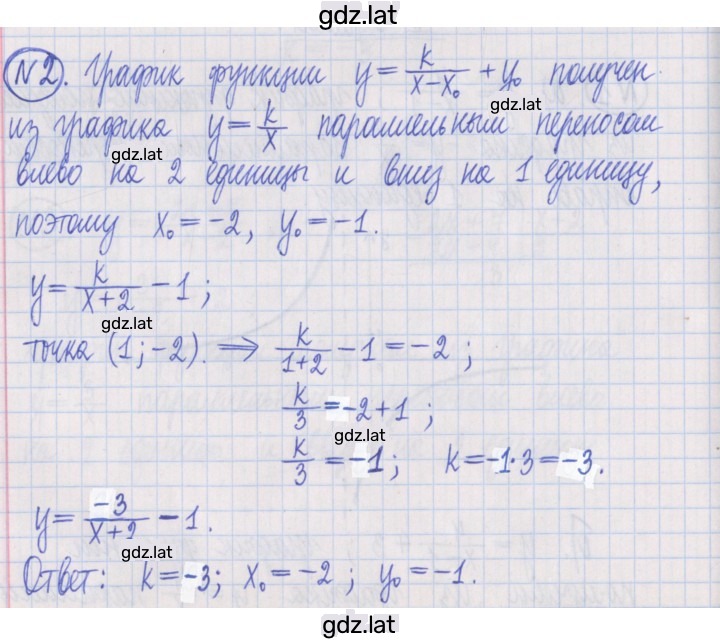 gdz.lat
№2. График функции y = k/(x−x₀) + y₀ получен
gdz.lat
из графика y = k/x параллельным переносом
gdz.lat
влево на 2 единицы и вниз на 1 единицу,
поэтому x₀ = −2, y₀ = −1.
y = k/(x+2) − 1;
gdz.lat
точка (1; −2). ⟹ k/(1+2) − 1 = −2;
k/3 = −2+1;
gdz.lat
k/3 = −1; k = −1·3 = −3.
y = −3/(x+2) − 1.
gdz.lat
Ответ: k = −3; x₀ = −2; y₀ = −1.
gdz.lat